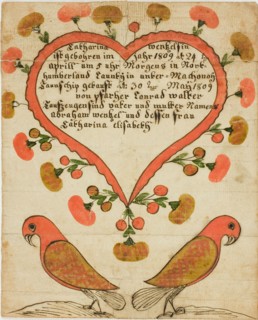 Catharina wenkelsin
ist gebohren im jahr 1809 d 24
aprill um 5 uhr Morgens in Nort
humberland Caunty in unter Machonoy
Taunschip getauft d 30 May 1809
von pfarher Conrad walter
Taufzeugen sind vater und mutter Namens
abraham wenkel und dessen frau
Catharina elisabeth